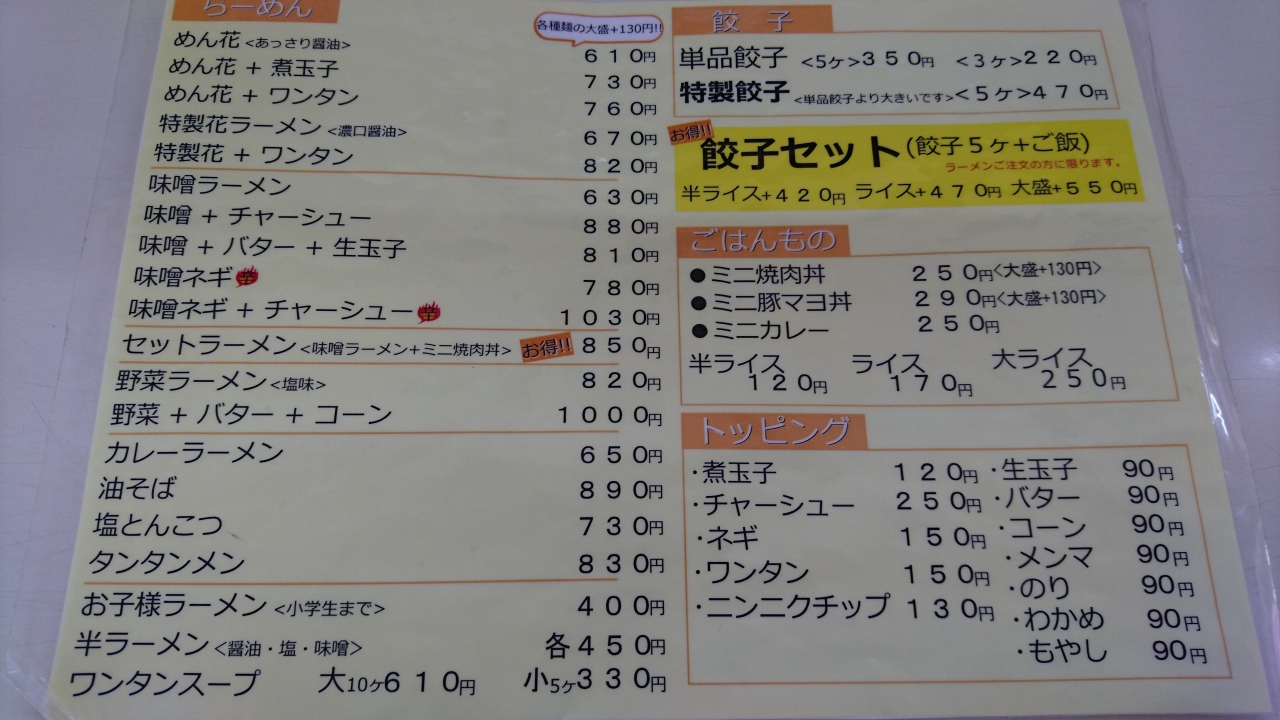 らーめん
各種麺の大盛+130円!!
めん花<あっさり醤油> 610円
めん花 + 煮玉子 730円
めん花 + ワンタン 760円
特製花ラーメン<濃口醤油> 670円
特製花 + ワンタン 820円
味噌ラーメン 630円
味噌 + チャーシュー 880円
味噌 + バター + 生玉子 810円
味噌ネギ辛 780円
味噌ネギ + チャーシュー辛 1030円
セットラーメン<味噌ラーメン+ミニ焼肉丼> お得!! 850円
野菜ラーメン<塩味> 820円
野菜 + バター + コーン 1000円
カレーラーメン 650円
油そば 890円
塩とんこつ 730円
タンタンメン 830円
お子様ラーメン<小学生まで> 400円
半ラーメン<醤油・塩・味噌> 各450円
ワンタンスープ 大10ケ610円 小5ケ330円
餃子
単品餃子 <5ケ>350円 <3ケ>220円
特製餃子<単品餃子より大きいです><5ケ>470円
お得!!
餃子セット(餃子5ケ+ご飯)
ラーメンご注文の方に限ります。
半ライス+420円 ライス+470円 大盛+550円
ごはんもの
●ミニ焼肉丼 250円<大盛+130円>
●ミニ豚マヨ丼 290円<大盛+130円>
●ミニカレー 250円
半ライス ライス 大ライス
120円 170円 250円
トッピング
・煮玉子 120円 ・生玉子 90円
・チャーシュー 250円 ・バター 90円
・ネギ 150円 ・コーン 90円
・ワンタン 150円 ・メンマ 90円
・ニンニクチップ 130円 ・のり 90円
・わかめ 90円
・もやし 90円